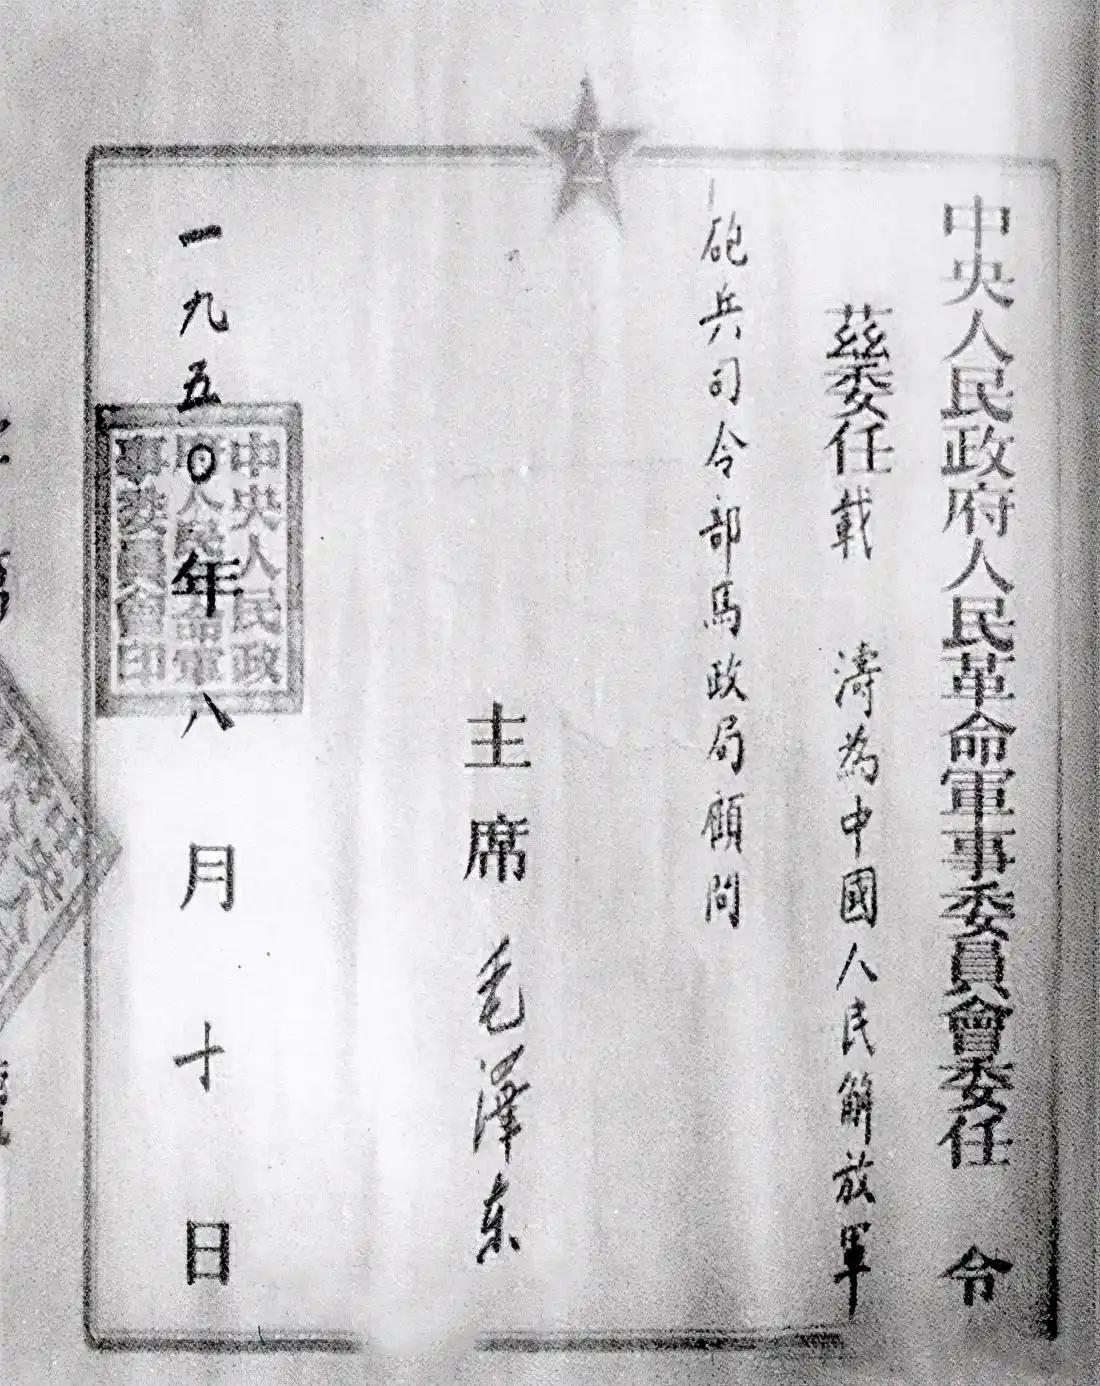 中央人民政府人民革命軍事委員會委任令
茲委任載 濤為中國人民解放軍
砲兵司令部馬政局顧問
主席 毛澤东
一九五〇年八月十日
中央人民政
府人民革命軍
事委員會印